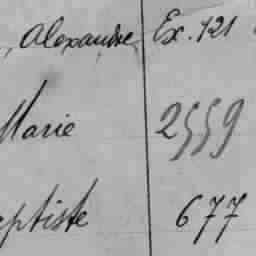 , Alexandre Ex. 121
Marie 2559
eptiste 677